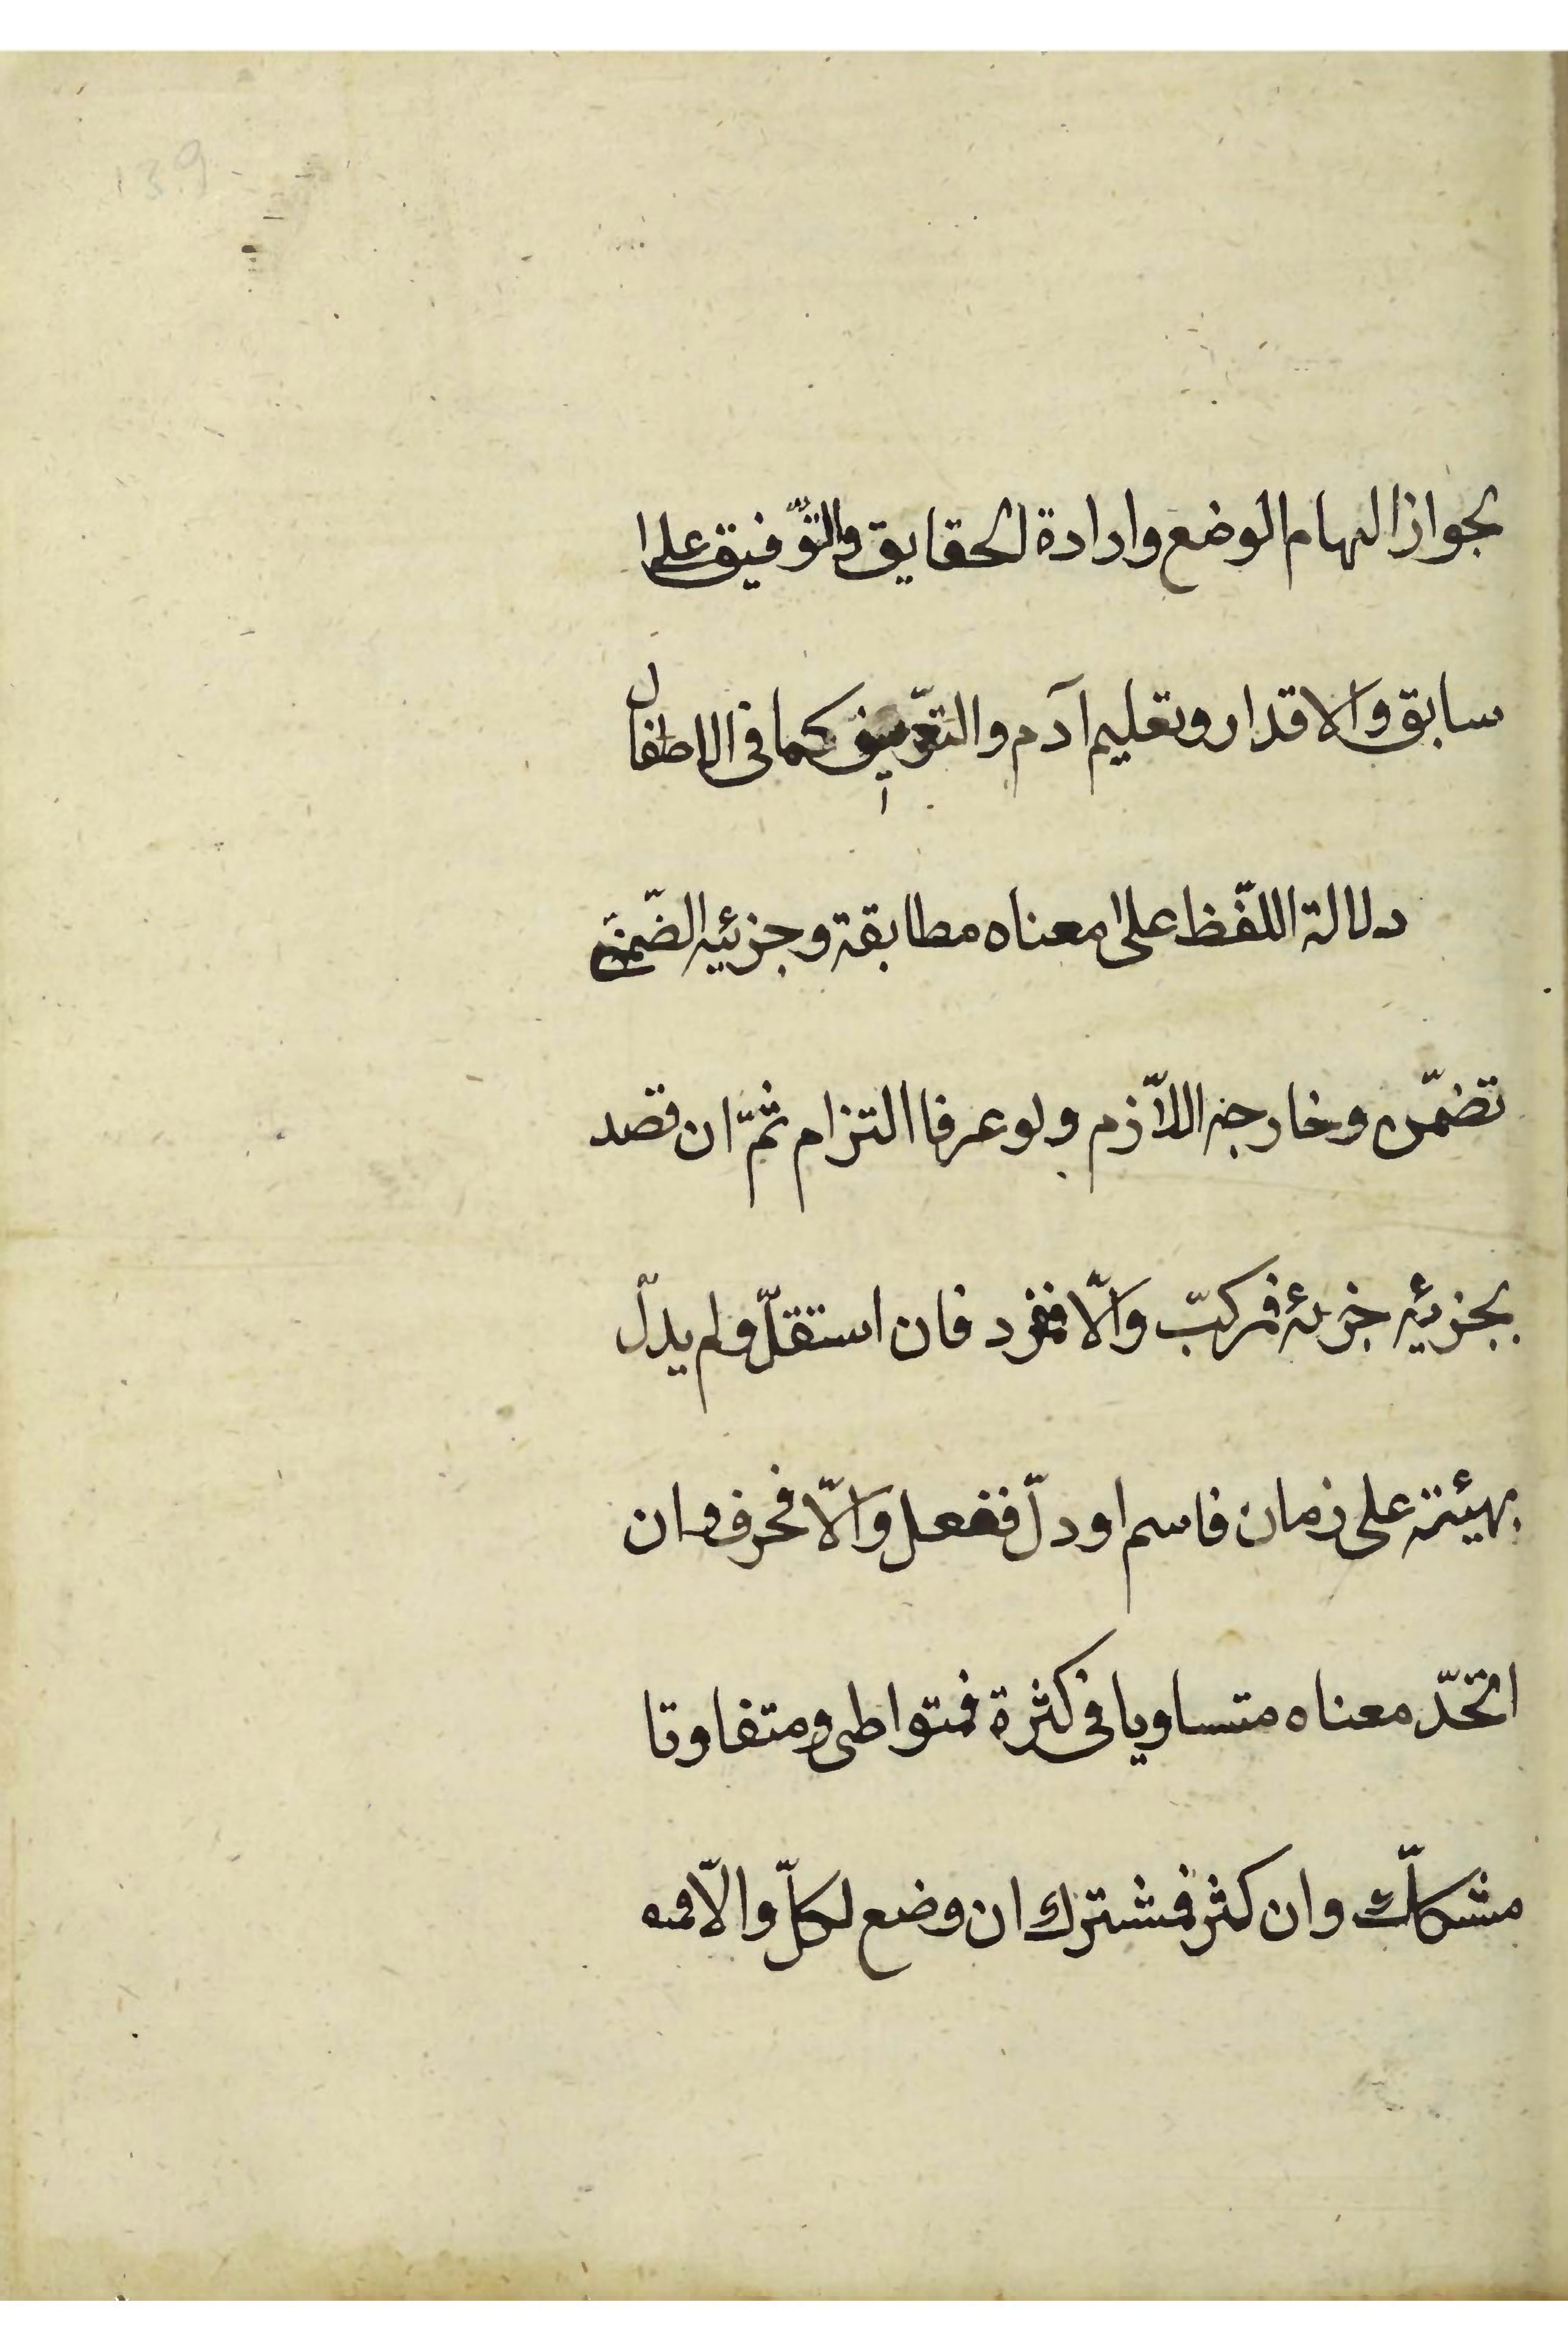 139
لجواز الهام الوضع وارادة الحقايق والتّوفيق على
سابق والاقدار وتعليم آدم والتّعريف كما فى الاطفال
دلالة اللّفظ على معناه مطابقة وجزئيه الضّمنى
تضمّن وخارجه اللّازم ولو عرفا التزام ثمّ ان قصد
بجزئيه جزئه فمركّب والّا فمفرد فان استقلّ ولم يدلّ
بهيئته على زمان فاسم او دلّ ففعل والّا فحرف وان
اتّحد معناه متساويا فى كثرة فمتواطى ومتفاوتا
مشكّك وان كثر فمشترك ان وضع لكلّ والّا